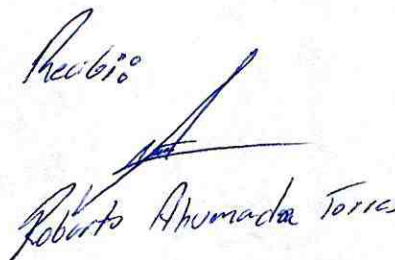 Recibió:
Roberto Ahumada Torres